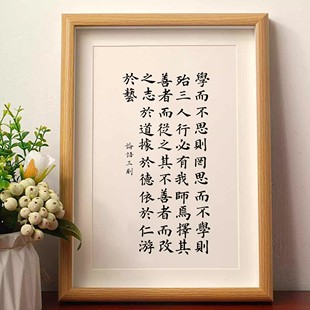 學而不思則罔思而不學則
殆三人行必有我師焉擇其
善者而從之其不善者而改
之志於道據於德依於仁游
於藝
論語三則